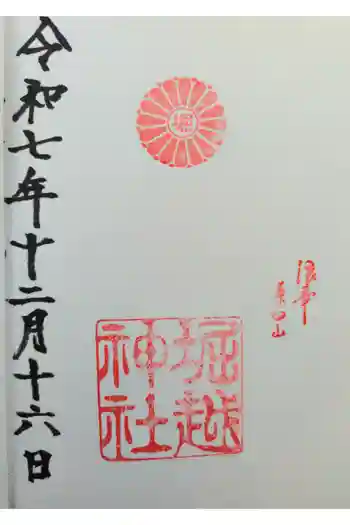 堀
浪華
堀越
神社
令和七年十二月十六日